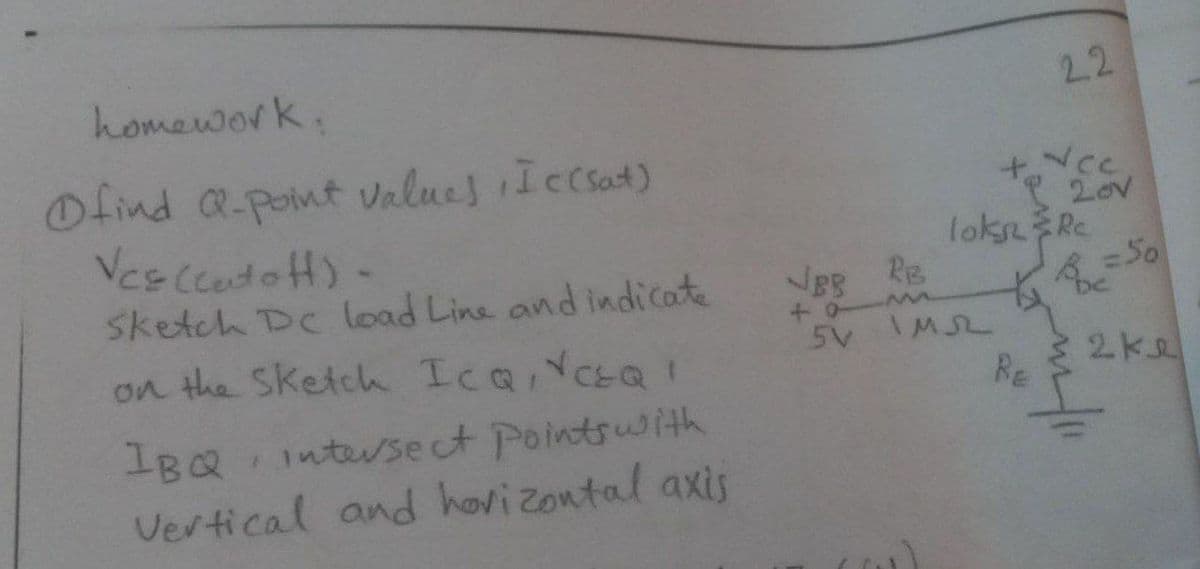 22
homework:
① find Q-point values, Ic(sat)
VCE (cutoff) -
sketch DC load Line and indicate
on the sketch ICQ, VCEQ,
IBQ, intersect points with
Vertical and horizontal axis
+ VCC
20V
10kΩ RC
βDC = 50
VBB RB
+
5V 1MΩ
RE 2kΩ